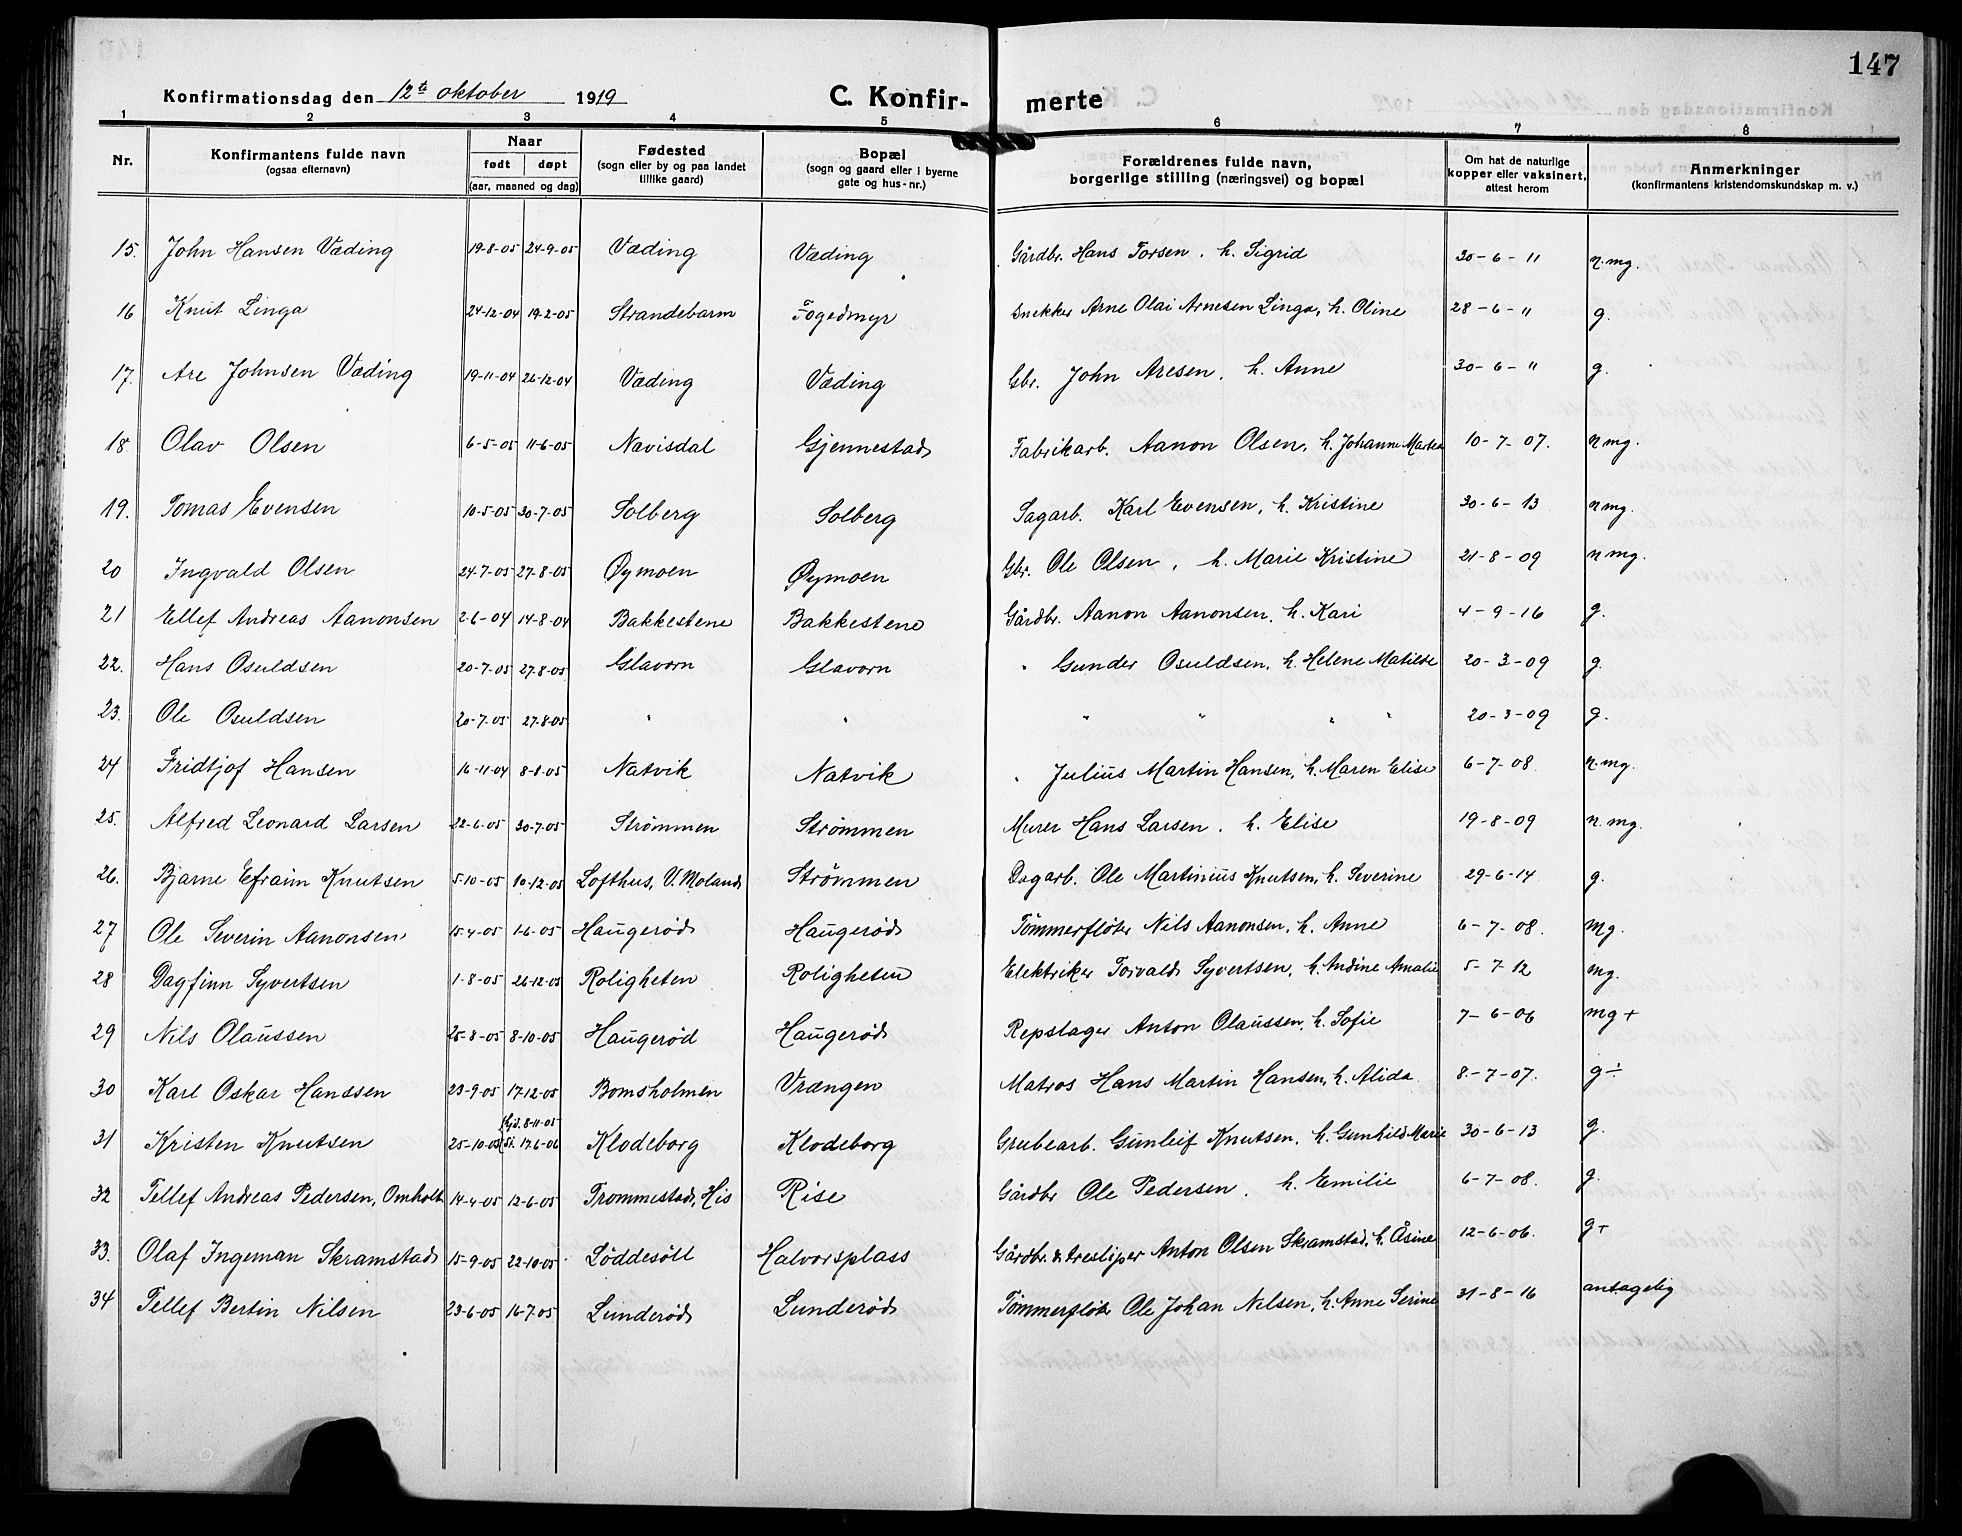 147
Konfirmationsdag den 12te oktober 1919 C. Konfir- merte
1 2 3 4 5 6 7 8
Nr. Konfirmantens fulde navn (ogsaa efternavn) Naar født døpt (aar, maaned og dag) Fødested (sogn eller by og paa landet tillike gaard) Bopæl (sogn og gaard eller i byerne gate og hus-nr.) Forældrenes fulde navn, borgerlige stilling (næringsvei) og bopæl Om hat de naturlige kopper eller vaksinert, attest herom Anmerkninger (konfirmantens kristendomskundskap m. v.)
15. John Hansen Væding 19-8-05 24-9-05 Væding Væding Gårdbr. Hans Torsen. h. Sigrid 30-6-11 n.mg.
16 Knut Linga 24-12-04 19-2-05 Strandebarm Fogedmyr Snekker Arne Olai Arnesen Linga, h. Oline 28-6-11 g.
17. Are Johnsen Væding 19-11-04 26-12-04 Væding Væding Gbr. John Aresen. h. Anne 30-6-11 g.
18. Olav Olsen 6-5-05 11-6-05 Navisdal Gjennestad Fabrikarb. Aanon Olsen, h. Johanne Martea 10-7-07. n mg.
19. Tomas Evensen 10-5-05 30-7-05 Solberg Solberg Sagarb. Karl Evensen, h. Kristine 30-6-13 n mg.
20 Ingvald Olsen 24-7-05 27-8-05 Øymoen Øymoen Gbr. Ole Olsen, h. Marie Kristine 21-8-09 n mg.
21 Ellef Andreas Aanonsen 2-6-04 14-8-04 Bakkestene Bakkestene Gårdbr. Aanon Aanonsen, h. Kari 4-9-16 g.
22. Hans Osuldsen 20-7-05 27-8-05 Glavorn Glavorn " Gunder Osuldsen, h. Helene Matilde 20-3-09 g.
23. Ole Osuldsen 20-7-05 27-8-05 " " " " " " 20-3-09 g.
24 Fridtjof Hansen 16-11-04 8-1-05 Natvik Natvik " Julius Martin Hansen, h. Maren Elise 6-7-08. n.mg.
25. Alfred Leonard Larsen 22-6-05 30-7-05 Strømmen Strømmen Murer Hans Larsen. h. Elise 19-8-09 n.mg.
26. Bjarne Efraim Knutsen 5-10-05 10-12-05 Lofthus, V. Moland Strømmen Dagarb. Ole Martinius Knutsen, h. Severine 29-6-14 g.
27 Ole Severin Aanonsen 15-4-05 1-6-05 Haugerød Haugerød Tømmerfløter Nils Aanonsen, h. Anne 6-7-08. mg.
28 Dagfinn Syvertsen 1-8-05 26-12-05 Roligheten Roligheten Elektriker Torvald Syvertsen, h. Andine Amalie 5-7-12 mg.
29 Nils Olaussen 25-8-05 8-10-05 Haugerød Haugerød Repslager Anton Olaussen, h. Sofie 7-6-06 mg+
30 Karl Oskar Hanssen 23-9-05 17-12-05 Bomsholmen Vrængen Matros Hans Martin Hansen, h. Alida. 8-7-07. g÷
31 Kristen Knutsen 25-10-05 hjd. 8-11-05 st. 17-6-06 Klodeborg Klodeborg Grubearb. Gunleif Knutsen, h. Gunhild Marie 30-6-13 g.
32 Tellef Andreas Pedersen, Omholt 14-4-05 12-6-05 Trommestad, His Rise Gårdbr Ole Pedersen. h. Emilie 6-7-08. g.
33. Olaf Ingeman Skramstad 15-9-05 22-10-05 Løddesøll Halvorsplass Gårdbr. & tresliper Anton Olsen Skramstad, h. Åsine 12-6-06. g+
34 Tellef Bertin Nilsen 23-6-05 16-7-05 Lunderød Lunderød Tømmerfløter Ole Johan Nilsen, h. Anne Serine 31-8-16 antagelig